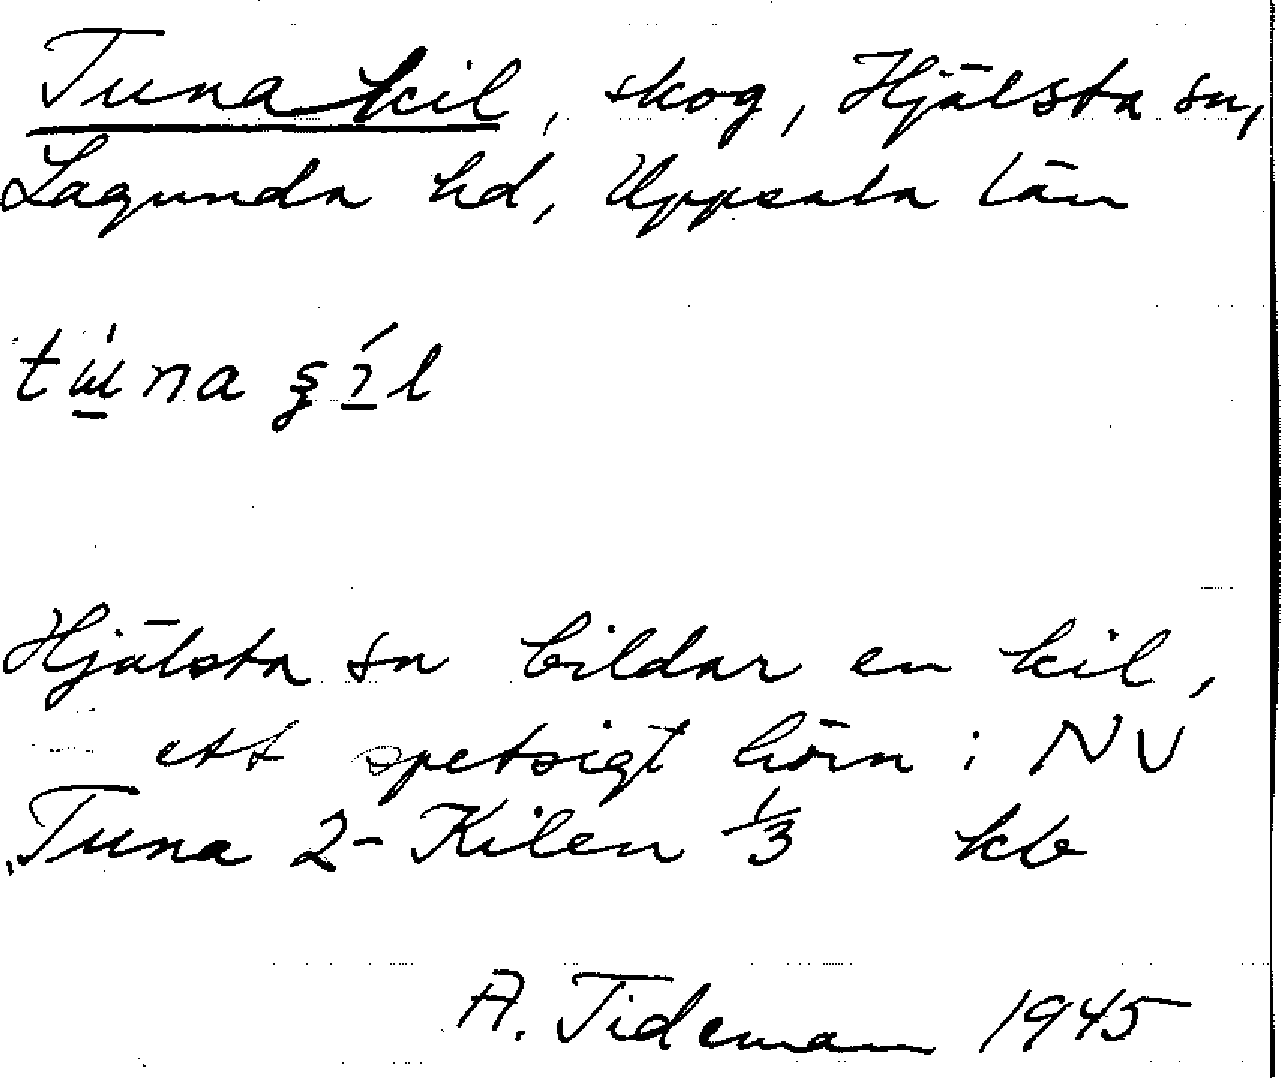 Tuna kil, skog, Hjälsta sn,
Lagunda hd, Uppsala län
Hjälsta sn bildar en kil,
ett spetsigt hörn i NV
Tuna 2 - Kilen 1/3 kb
A. Tideman 1945